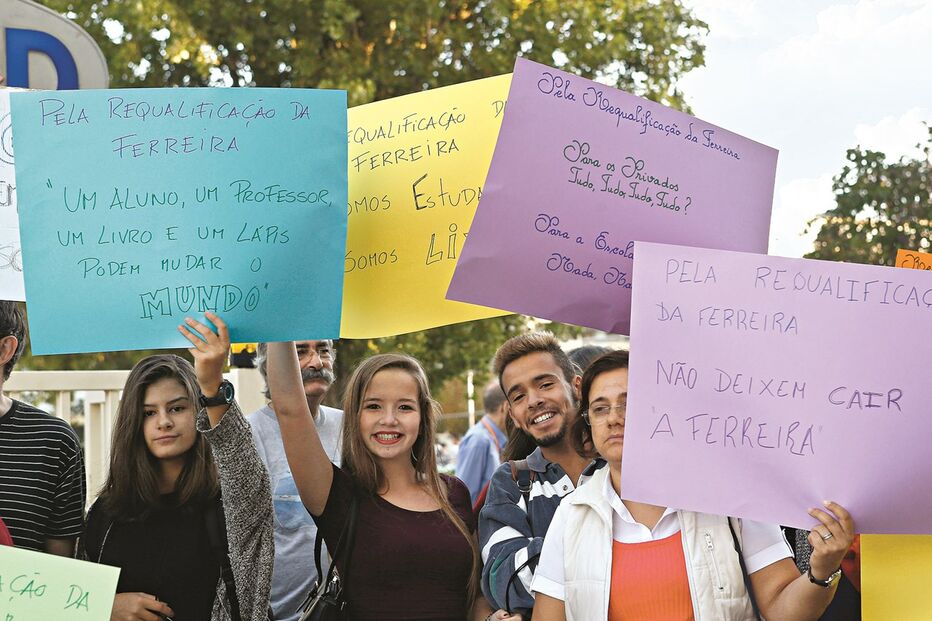 PELA REQUALIFICAÇÃO DA
FERREIRA
"UM ALUNO, UM PROFESSOR,
UM LIVRO E UM LÁPIS
PODEM MUDAR O
MUNDO"
EQUALIFICAÇÃO DA
FERREIRA
SOMOS ESTUDA
SOMOS LI
Pela Requalificação da Ferreira
Para os Privados
Tudo, Tudo, Tudo, Tudo?
Para a Escola
Nada, Na
PELA REQUALIFICAÇ
DA FERREIRA
NÃO DEIXEM CAIR
"A FERREIRA"
AÇÃO DA